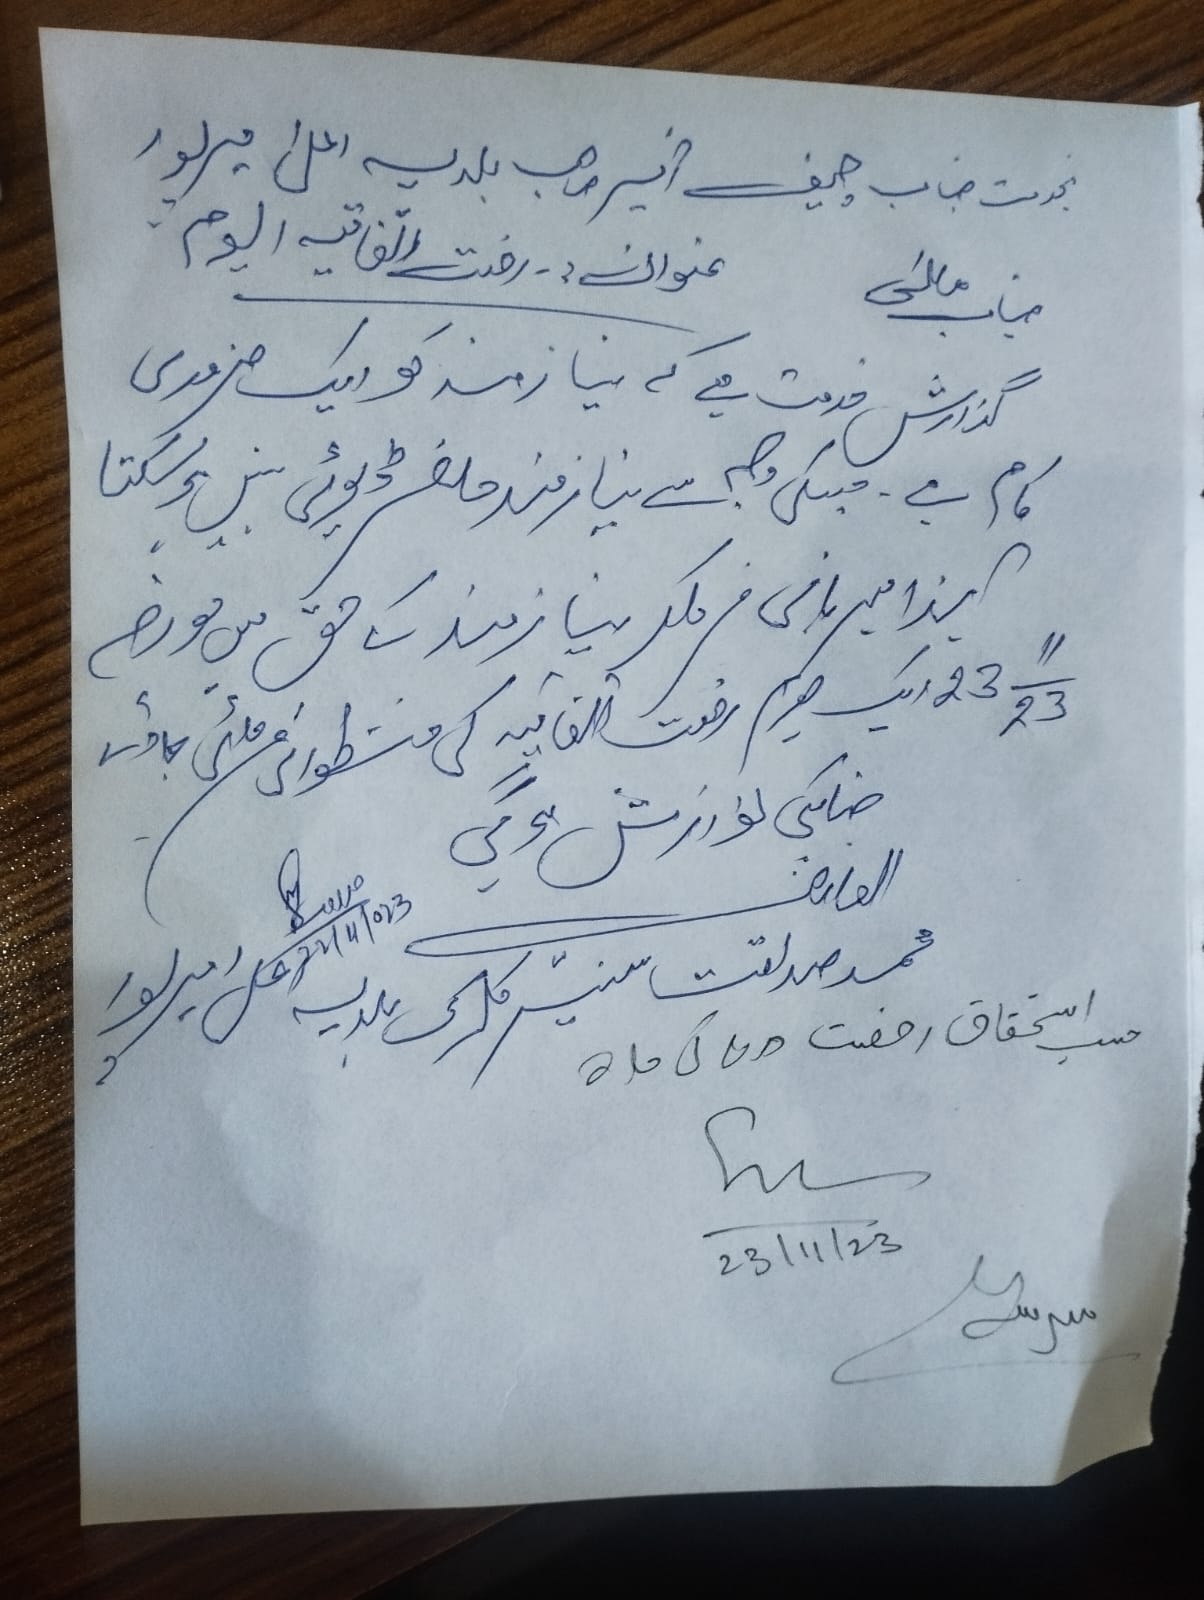 بخدمت جناب چیف آفیسر صاحب بلدیہ اعلیٰ میرپور
عنوان :- رخصت اتفاقیہ الیوم
جناب عالی
گذارش خدمت ہے کہ نیازمند کو ایک ضروری
کام ہے۔ جسکی وجہ سے نیازمند حاضر ڈیوٹی نہیں ہو سکتا
لہذا مہربانی فرما کر نیازمند کے حق میں مورخہ
23 11/23 ایک یوم رخصت اتفاقیہ کی منظوری فرمائی جائے
جناب کی نوازش ہوگی
العارض
22/11/023
محمد صداقت سینئر کلرک بلدیہ اعلیٰ میرپور
حسب استحقاق رخصت دی جائے
23/11/23